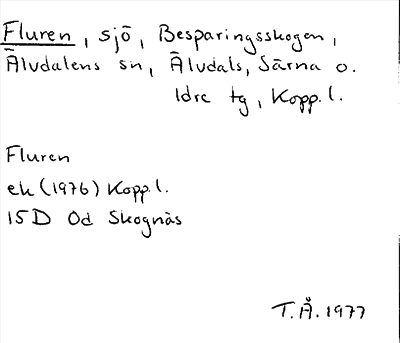 Fluren, sjö, Besparingsskogen,
Älvdalens sn, Älvdals, Särna o.
Idre tg, Kopp. l.
Fluren
ek (1976) Kopp. l.
15D 0d Skognäs
T.Å. 1977